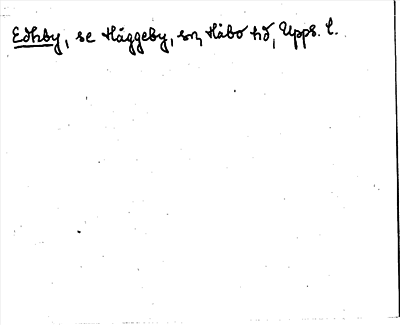 Edhby, se Häggeby, sn, Håbo hd, Upps. l.